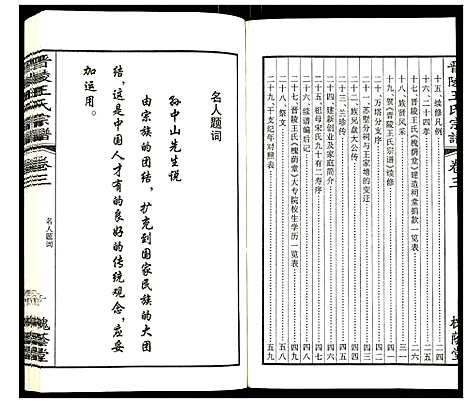 晋陵王氏宗谱 卷三
十五、续修凡例
十六、二十四孝
十七、晋陵王氏《槐荫堂》建造祠堂捐款一览表
十八、族贤风采
十九、贺《晋陵王氏宗谱》续修
二十、万塔分支序
二十一、苏墅分祠与王家塘的变迁
二十二、族兄盘大公传
二十三、兰珍传
二十四、建新创业及家庭简介
二十五、祖母宋氏九十有二寿序
二十六、续谱编后记
二十七、晋陵王氏《槐荫堂》大专院校生学历一览表
二十八、祭文
二十九、干支纪年对照表
五九
槐荫堂
名人题词
孙中山先生说
由宗族的团结，扩充到国家民族的大团
结，这是中国人才有的良好的传统观念，应妥
加运用。
晋陵王氏宗谱 卷三
名人题词
槐荫堂